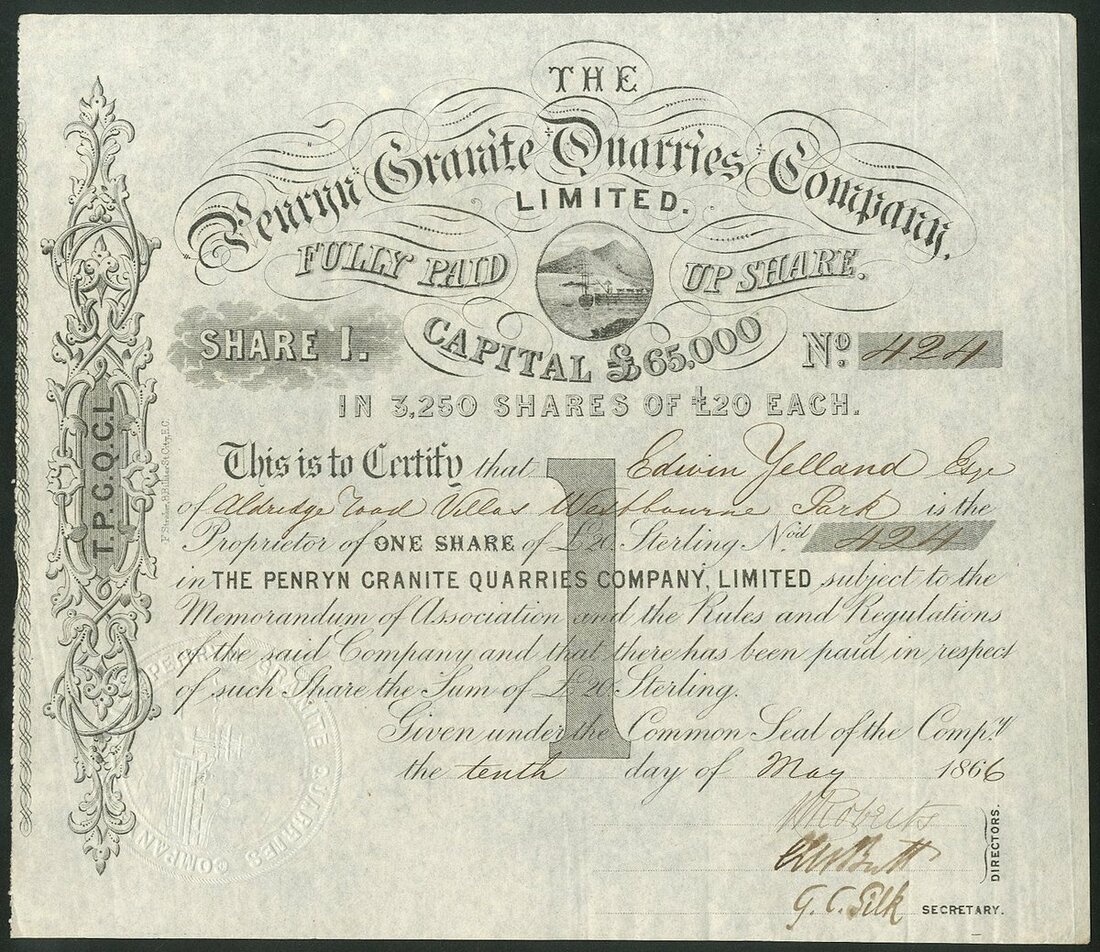 THE
Penryn Granite Quarries Company,
LIMITED.
FULLY PAID UP SHARE.
SHARE 1.
CAPITAL £65.000
No. 424
IN 3,250 SHARES OF £20 EACH.
This is to Certify that Edwin Yelland Esqe
of Aldridge Road Villas Westbourne Park is the
Proprietor of ONE SHARE of £20 Sterling No'd 424
in THE PENRYN GRANITE QUARRIES COMPANY, LIMITED subject to the
Memorandum of Association and the Rules and Regulations
of the said Company and that there has been paid in respect
of such Share the Sum of £20 Sterling.
Given under the Common Seal of the Compy.
the tenth day of May 1866
1
W Roberts
DIRECTORS.
G. C. Silk SECRETARY.
T.P.G.Q.C.L.
PENRYN GRANITE QUARRIES COMPANY